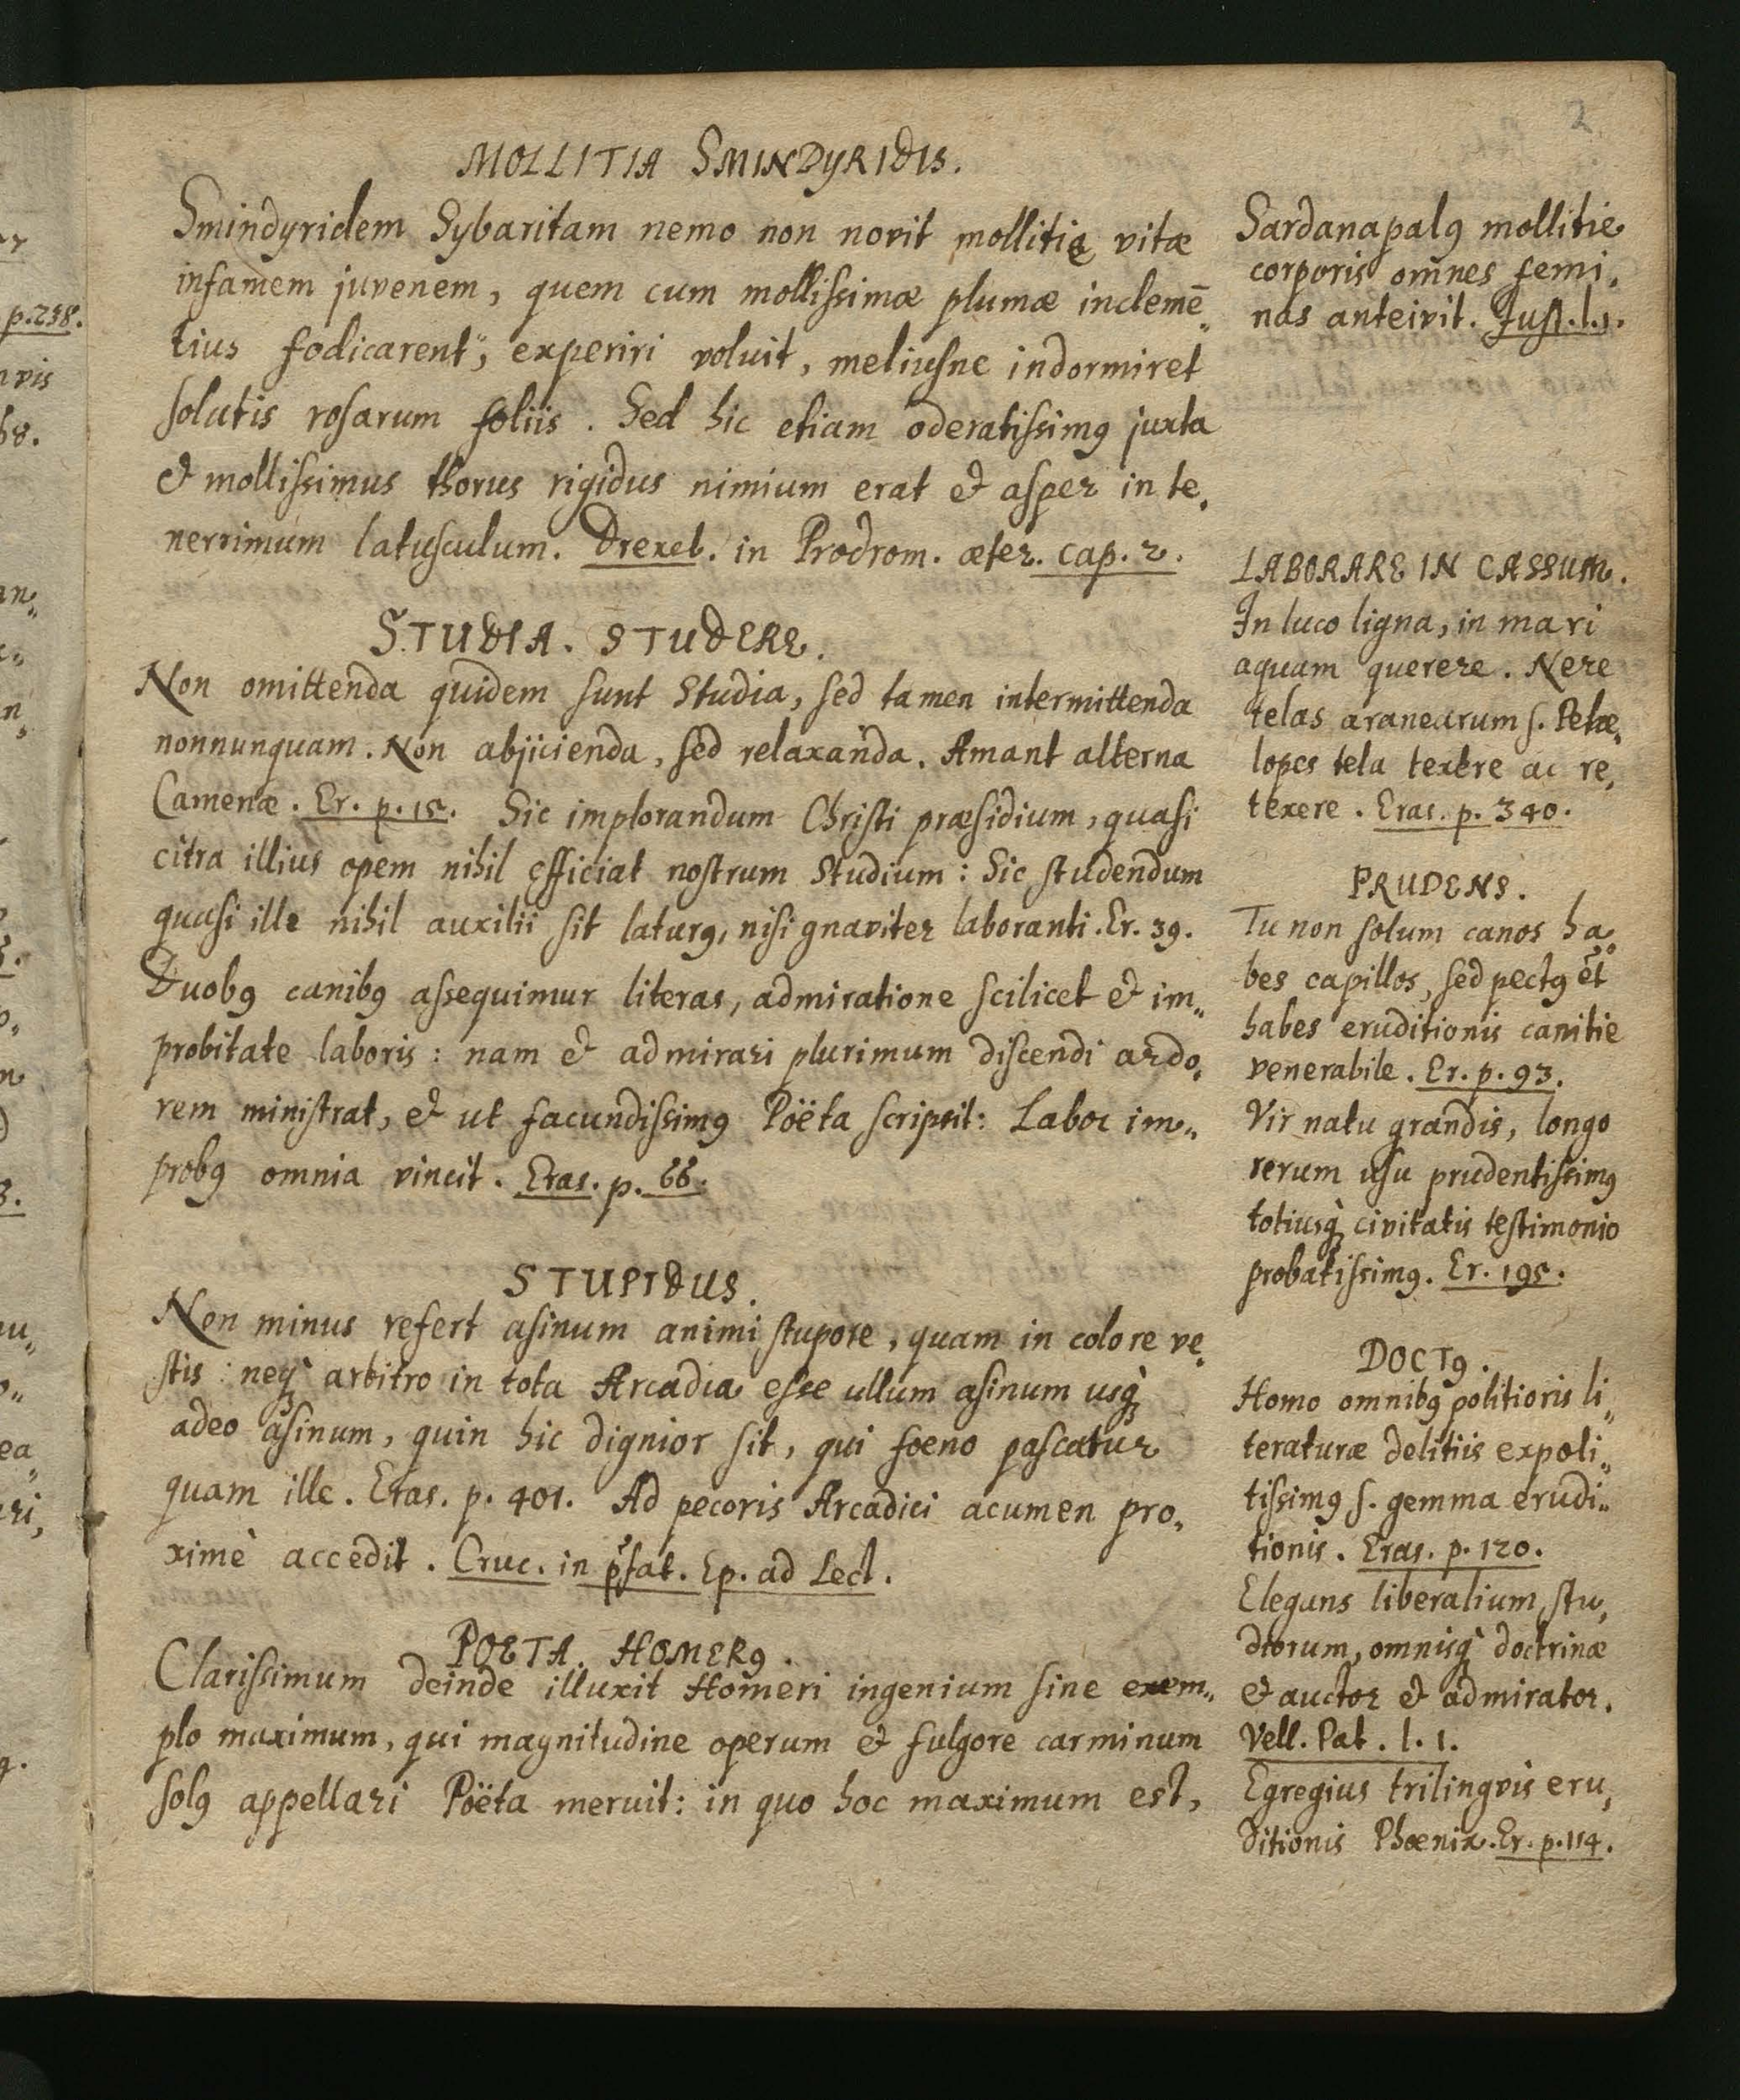 2
MOLLITIA SMINDYRIDIS.
Smindyridem Sybaritam nemo non novit mollitię vitæ
infamem juvenem, quem cum mollissimæ plumæ inclemē„
tius fodicarent, experiri voluit, meliusne indormiret
solutis rosarum foliis. Sed hic etiam oderatissimꝰ juxta
& mollissimus thorus rigidus nimium erat & asper in te„
nerrimum latusculum. Drexel. in Prodrom. æter. cap. 2.
STUDIA. STUDERE.
Non omittenda quidem sunt Studia, sed tamen intermittenda
nonnunquam. Non abjicienda, sed relaxanda. Amant alterna
Camenæ. Er. p. 15. Sic implorandum Christi præsidium, quasi
citra illius opem nihil efficiat nostrum Studium: Sic studendum
quasi ille nihil auxilii sit laturꝰ, nisi gnaviter laboranti. Er. 39.
Duobꝰ canibꝰ assequimur literas, admiratione scilicet & im„
probitate laboris: nam & admirari plurimum discendi ardo„
rem ministrat, & ut facundissimꝰ Poëta scripsit: Labor im„
probꝰ omnia vincit. Eras. p. 66.
STUPIDUS.
Non minus refert asinum animi stupore, quam in colore ve„
stis: neqꝫ arbitro in tota Arcadia esse ullum asinum usqꝫ
adeo asinum, quin hic dignior sit, qui foeno pascatur
quam ille. Eras. p. 401. Ad pecoris Arcadici acumen pro„
ximè accedit. Cruc. in p̄fat. Ep. ad Lect.
POETA. HOMERꝰ.
Clarissimum deinde illuxit Homeri ingenium sine exem„
plo maximum, qui magnitudine operum & fulgore carminum
solꝰ appellari Poëta meruit: in quo hoc maximum est,
Sardanapalꝰ mollitie
corporis omnes femi„
nas anteivit. Just. l. 1.
LABORARE IN CASSUM.
In luco ligna, in mari
aquam querere. Nere
telas aranearum s. Penæ„
lopes tela texere ac re„
texere. Eras. p. 340.
PRUDENS.
Tu non solum canos ha„
bes capillos, sed pectꝰ et
habes eruditionis canitie
venerabile. Er. p. 93.
Vir natu grandis, longo
rerum usu prudentissimꝰ
totiusqꝫ civitatis testimonio
probatissimꝰ. Er. 195.
DOCTꝰ.
Homo omnibꝰ politioris li„
teraturæ delitiis expoli„
tissimꝰ s. gemma erudi„
tionis. Eras. p. 120.
Elegans liberalium stu„
diorum, omnisqꝫ doctrinæ
& auctor & admirator.
Vell. Pat. l. 1.
Egregius trilingvis eru„
ditionis Phœnix. Er. p. 114.
p. 258.